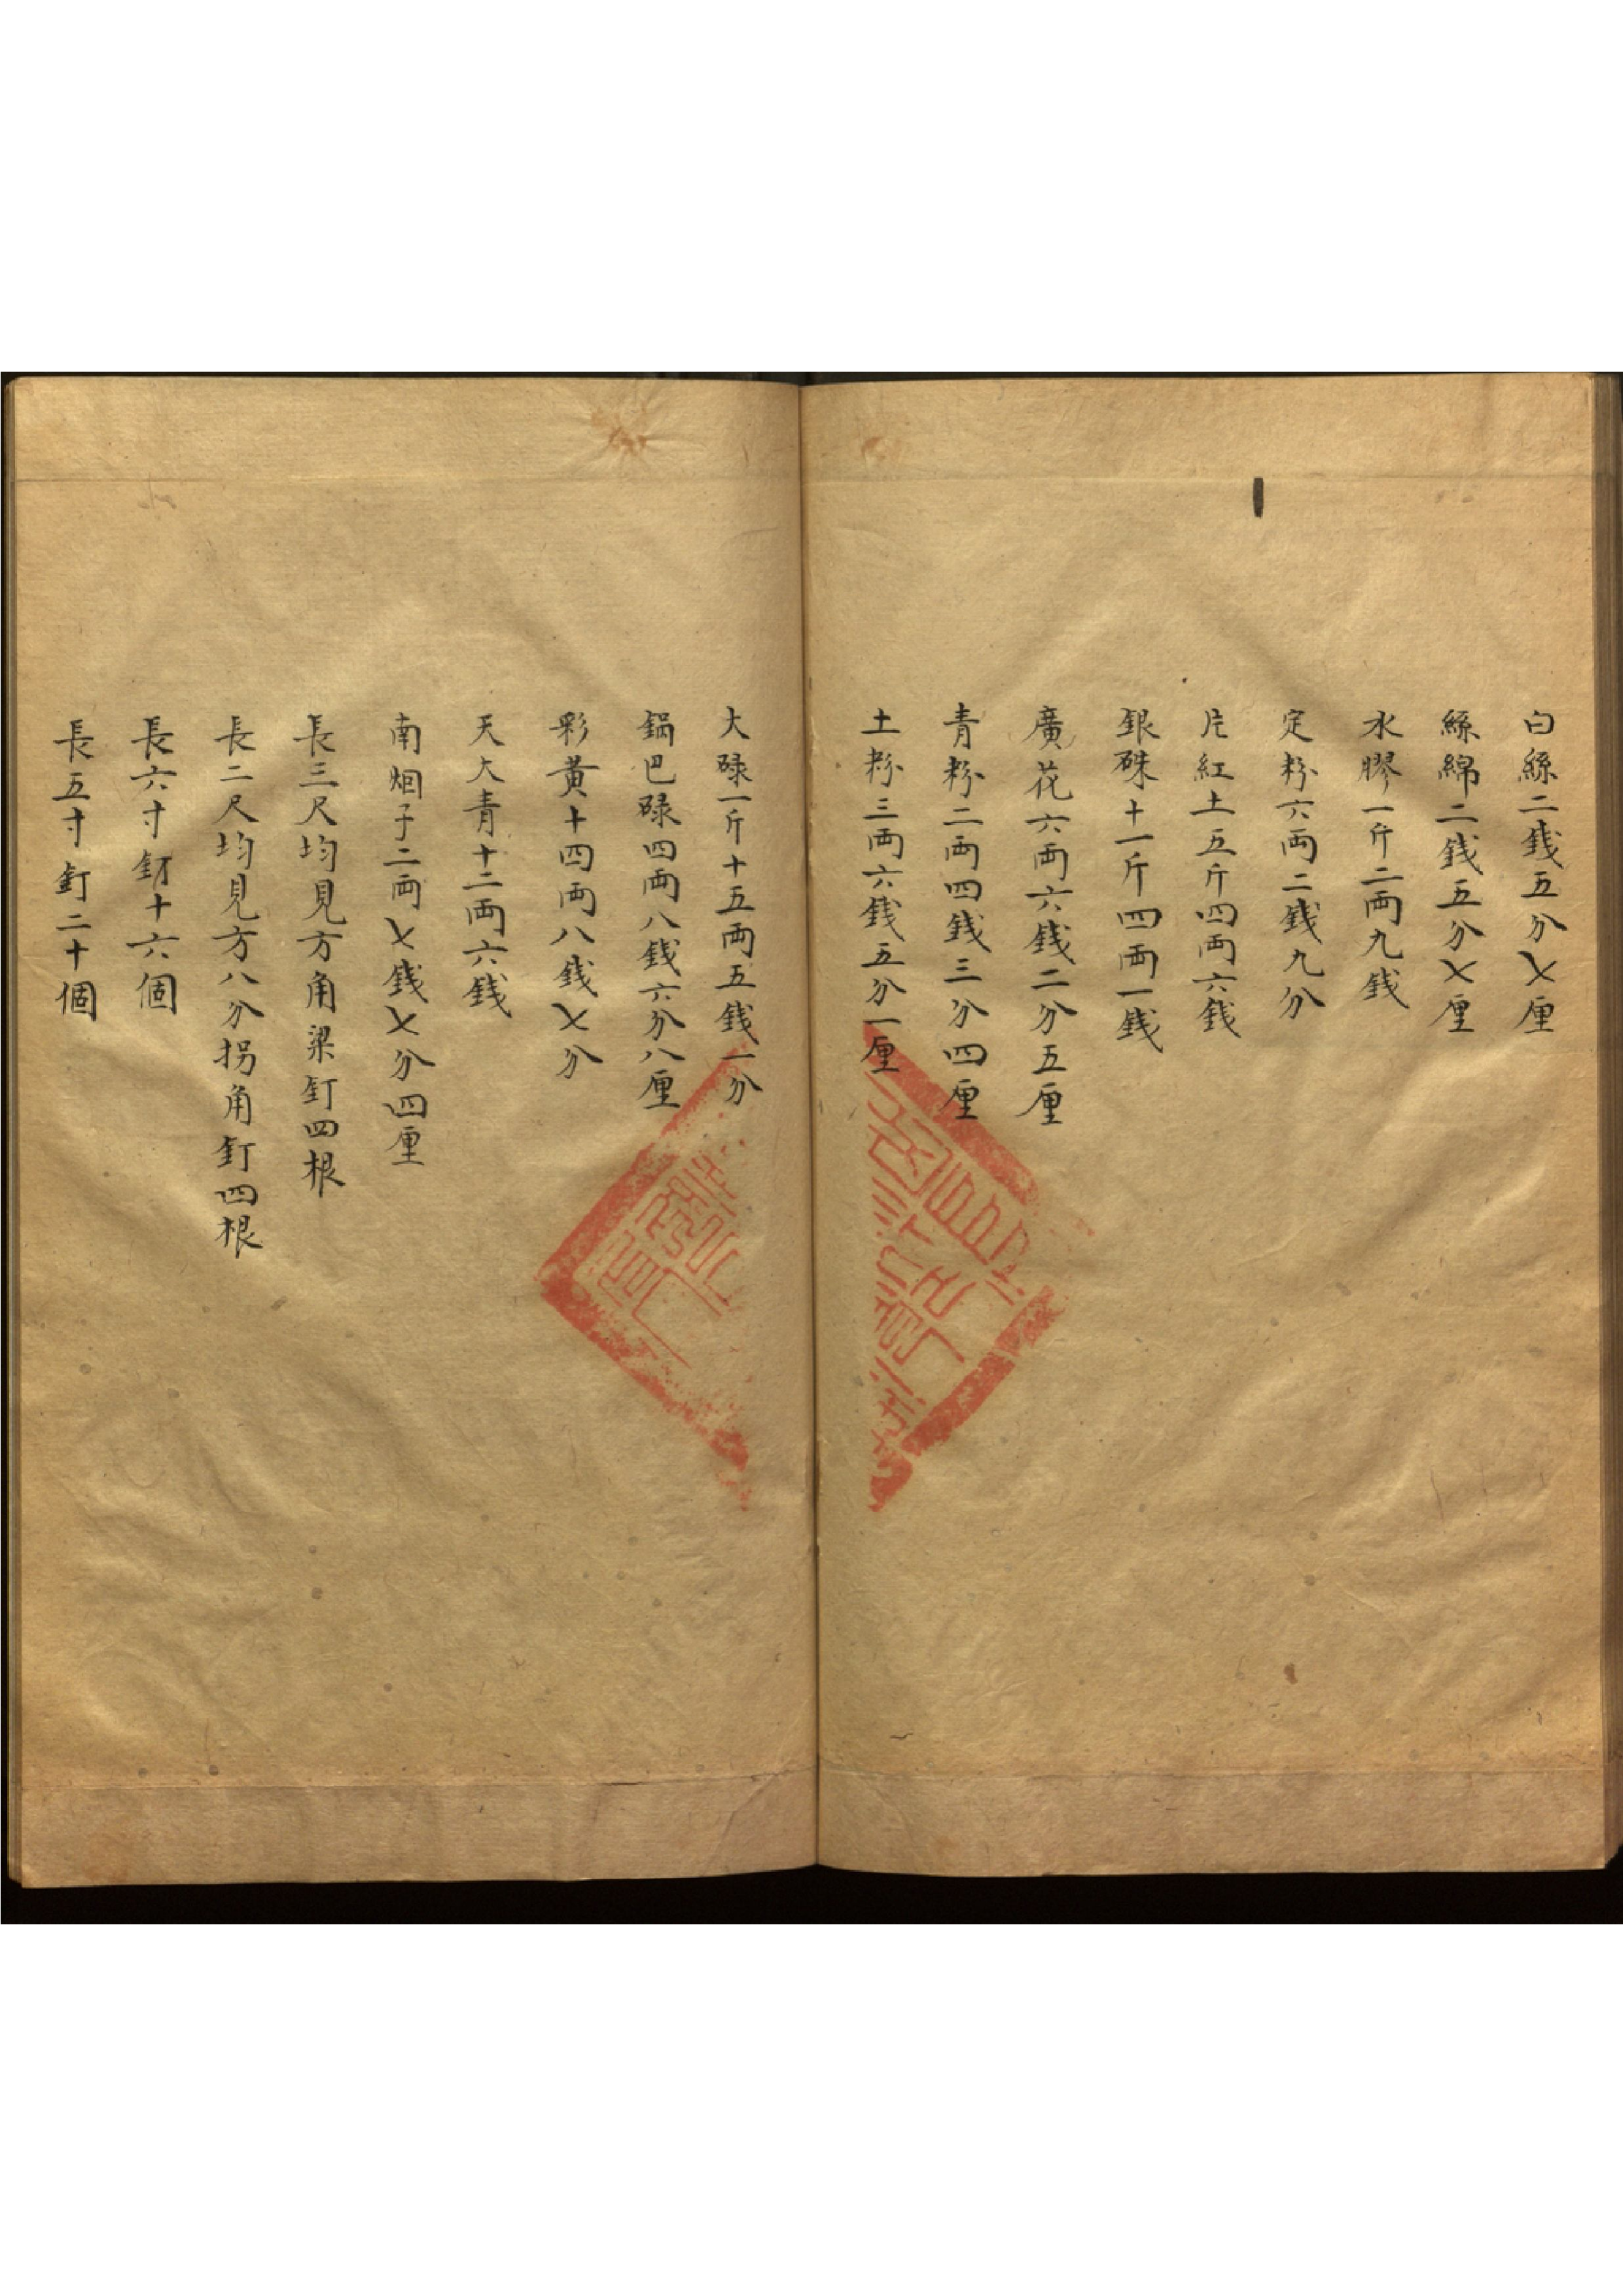 白絲二銭五分乂厘
絲綿二銭五分乂厘
水膠一斤二両九銭
定粉六両二銭九分
片紅土五斤四両六銭
銀硃十一斤四両一銭
廣花六両六銭二分五厘
青粉二両四銭三分四厘
土粉三両六銭五分一厘
大碌一斤十五両五銭一分
鍋巴碌四両八銭六分八厘
彩黄十四両八銭乂分
天大青十二両六銭
南烟子二両乂銭乂分四厘
長三尺均見方角梁釘四根
長二尺均見方八分拐角釘四根
長六寸釘十六個
長五寸釘二十個